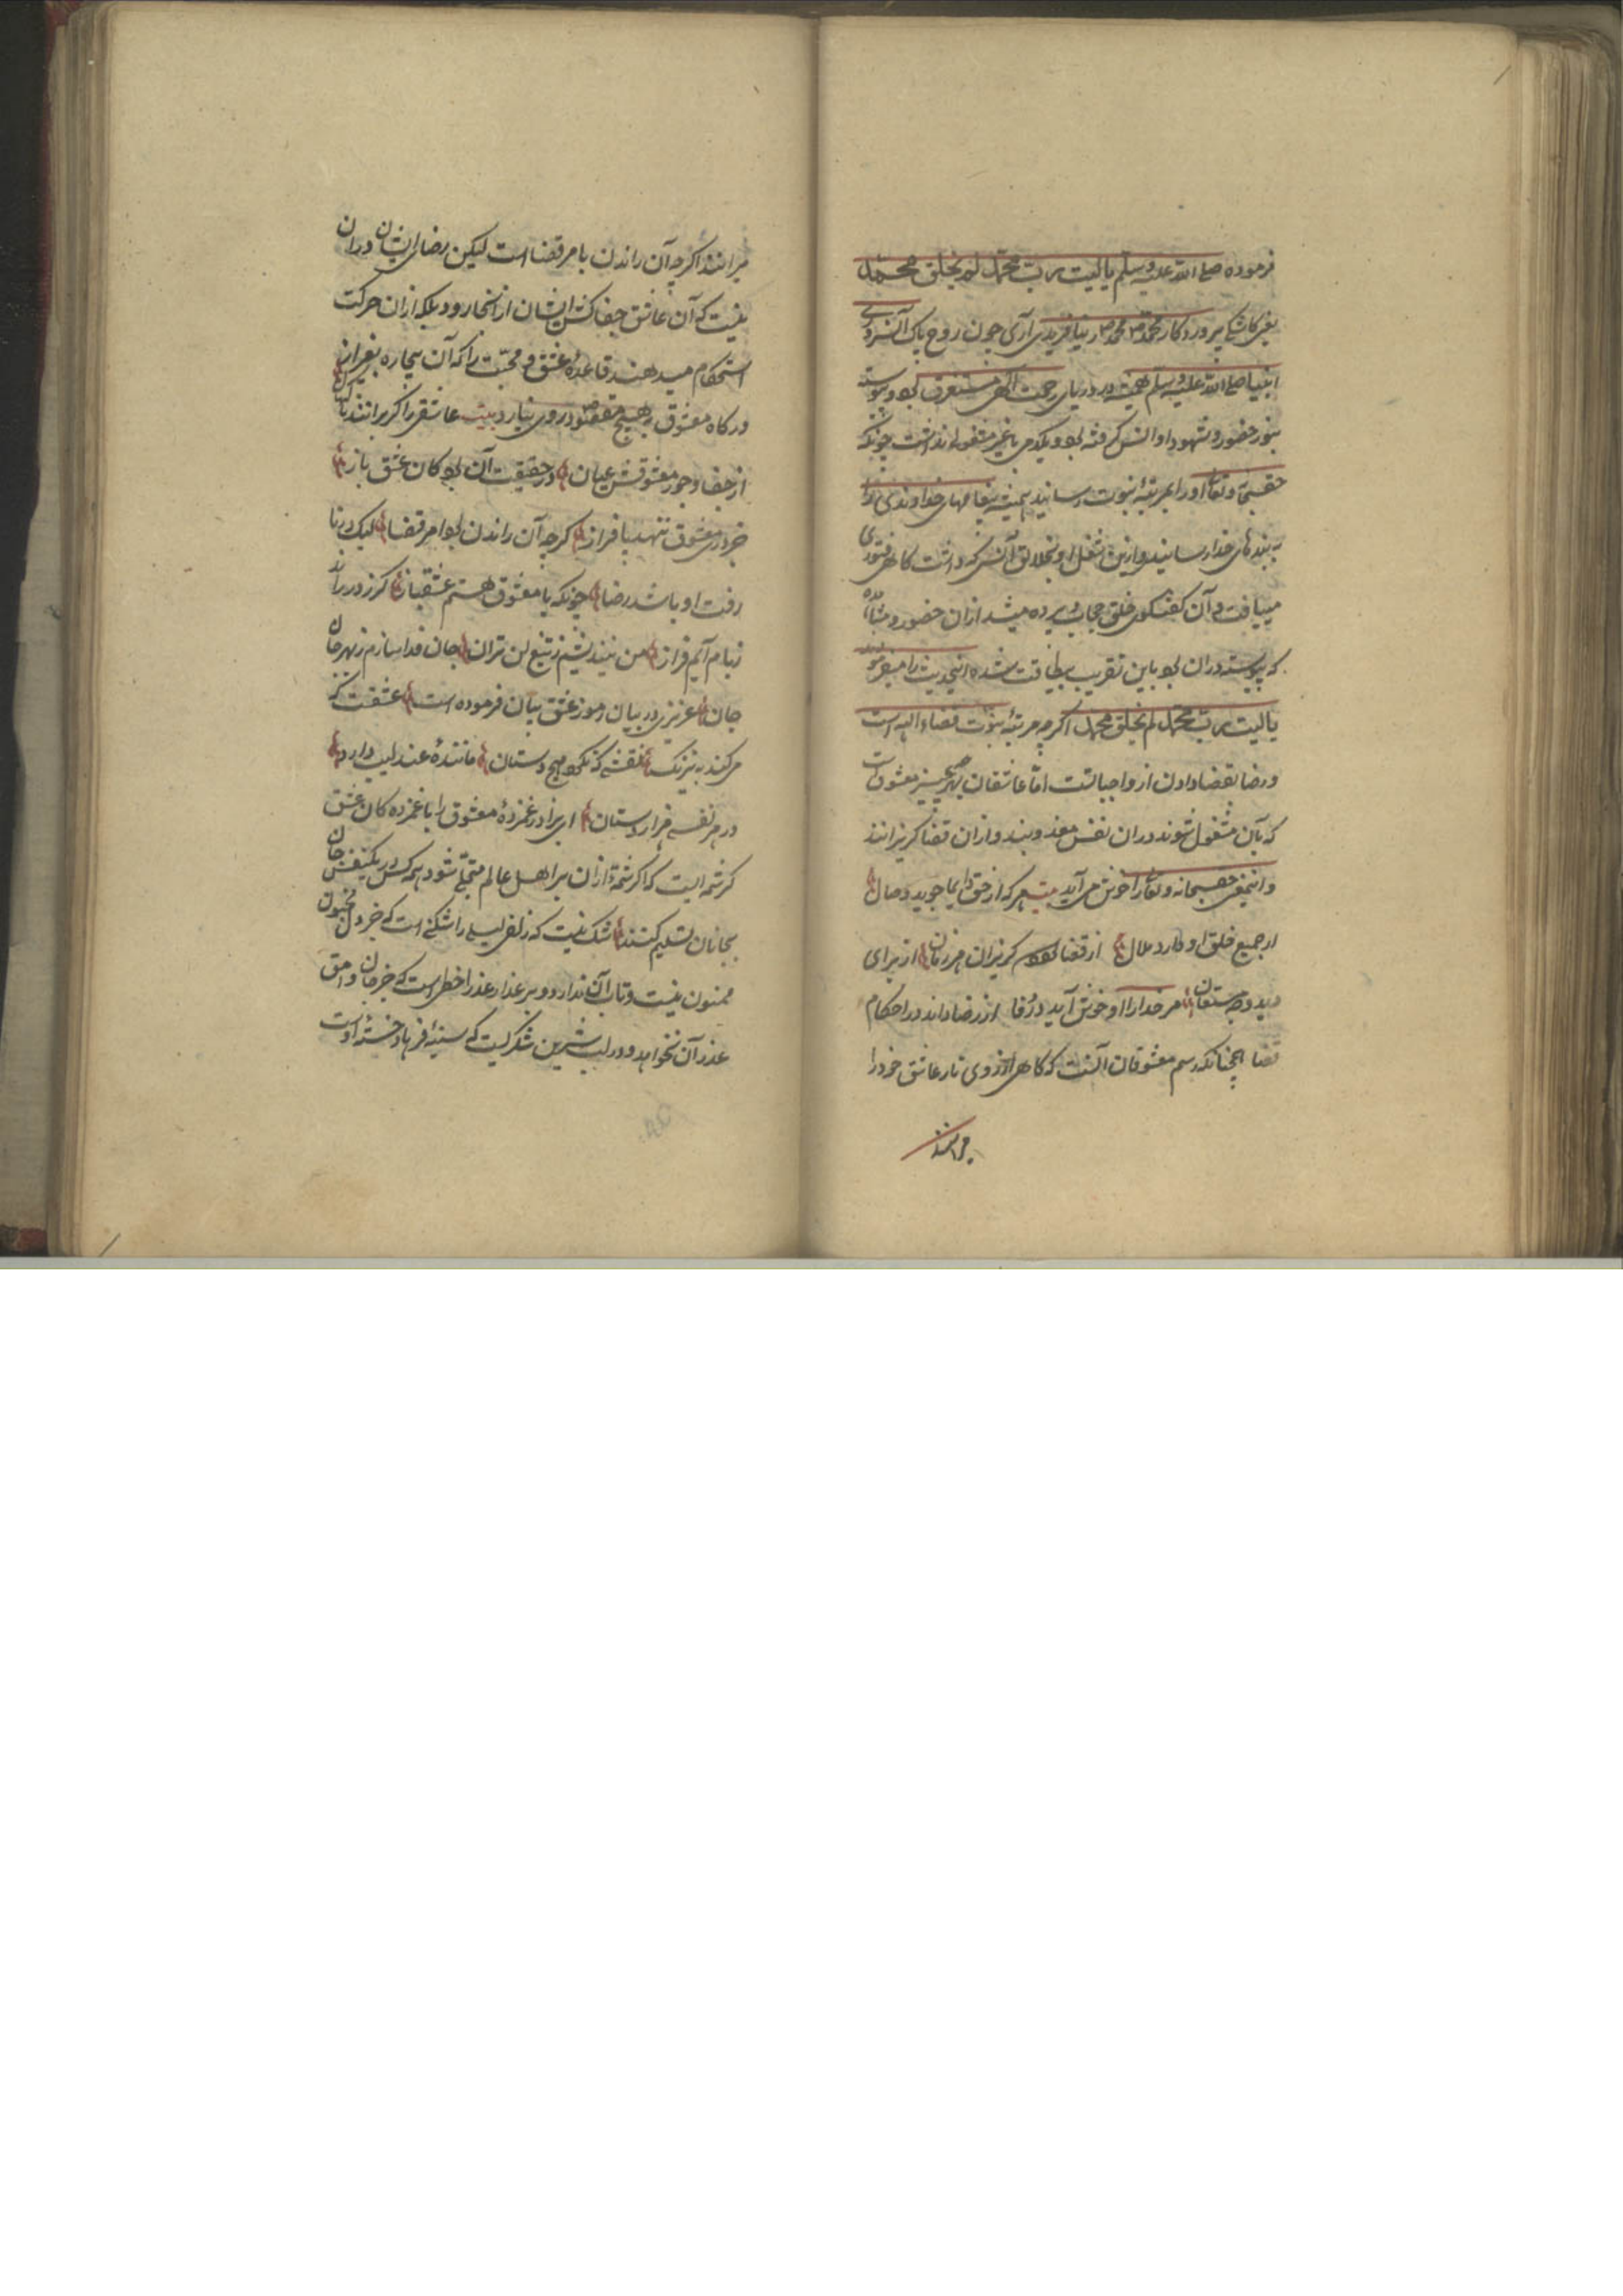 فرموده صلی الله علیه وسلم یا لیت رب محمد لم یخلق محمد
یعنی کاشکی پروردکار محمد محمد را نیافریدی آری چون روح پاک آنسرور
انبیا صلی الله علیه وسلم همیشه در دریای رحمت الهی مستغرق بود و پیوسته
بنور حضور و شهود او انس کرفته بود و یکدمی با غیر مشغولی نداشت چونکه
حقسبحانه وتعالی اورا بمرتبهٔ نبوت رسانید همیشه پیغامهای خداوندی را
به بندهای خدا رسانید و ازین شغل او بخلایق آنسی که داشت کاهی فتوری
مییافت و آن کفتکوی خلق حجاب و پرده میشد ازان حضور و مشاهده
که پیوسته دران بود باین تقریب بیطاقت شده اینحدیث را میفرمودند
یا لیت رب محمد لم یخلق محمد اکرچه مرتبهٔ نبوت قضاء الهی است
و رضا بقضا دادن از واجباتست اما عاشقان بهر چیز معشوق است
که بآن مشغول شوند دران نفس معذوبند و ازان قضا کریزانند
و اینمعنی حقسبحانه وتعالی را خوش می آید بیت هر که از حق دایما جوید وصال
از جمیع خلق او دارد ملال از قضا بود کریزان هر زمان از برای
دید وجه مستعان مر خدارا او خوش آید در قفا از رضا داند در احکام
قضا همچنانکه رسم معشوقان آنست که کاهی از روی ناز عاشق خود را
میرانند
میرانند اکرچه آن راندن بامر قضا است لیکن رضای ایشان دران
نیست که آن عاشق جفاکش ایشان از انجا رود بلکه ازان حرکت
استحکام میدهند قاعدهٔ عشق و محبت را که آن بیچاره بغیر از
درکاه معشوق بهیچ مقصود روی نیارد بیت عاشقی را کر برانند
از جفا و جور معشوقش عیان در حقیقت آن بود کان عشق باز
جز در معشوق ننهد پا فراز کرچه آن راندن بود امر قضا لیک در نا
رفت او باشد رضا چونکه با معشوق هستم عشقباز کر ز در راند
زبام آیم فراز من نیندیشم ز تیغ لن تران جان فدا سازم ز بهر جان
جان عزیزی در بیان رموز عشق بیان فرموده است عشقت که
مرکند به نیرنک نقشی که نکرد هیچ دستان مانندهٔ عندلیب دارد
در هر نفسی هزار دستان ای برادر غمزهٔ معشوق را با غمزده کان عشق
کرشمه ایست که اکر شمهٔ ازان بر اهل عالم متجلی شود همه کس در یکنفس جان
بجانان تسلیم کنند شک نیست که زلف لیلی را شکنی است که جز دل مجنون
ممنون نیست و تاب آن ندارد و بر عذار عذرا خطی است که جز جان وامق
عذر آن نخواهد و در لب شیرین شکریست که سینهٔ فرهاد خستهٔ اوست